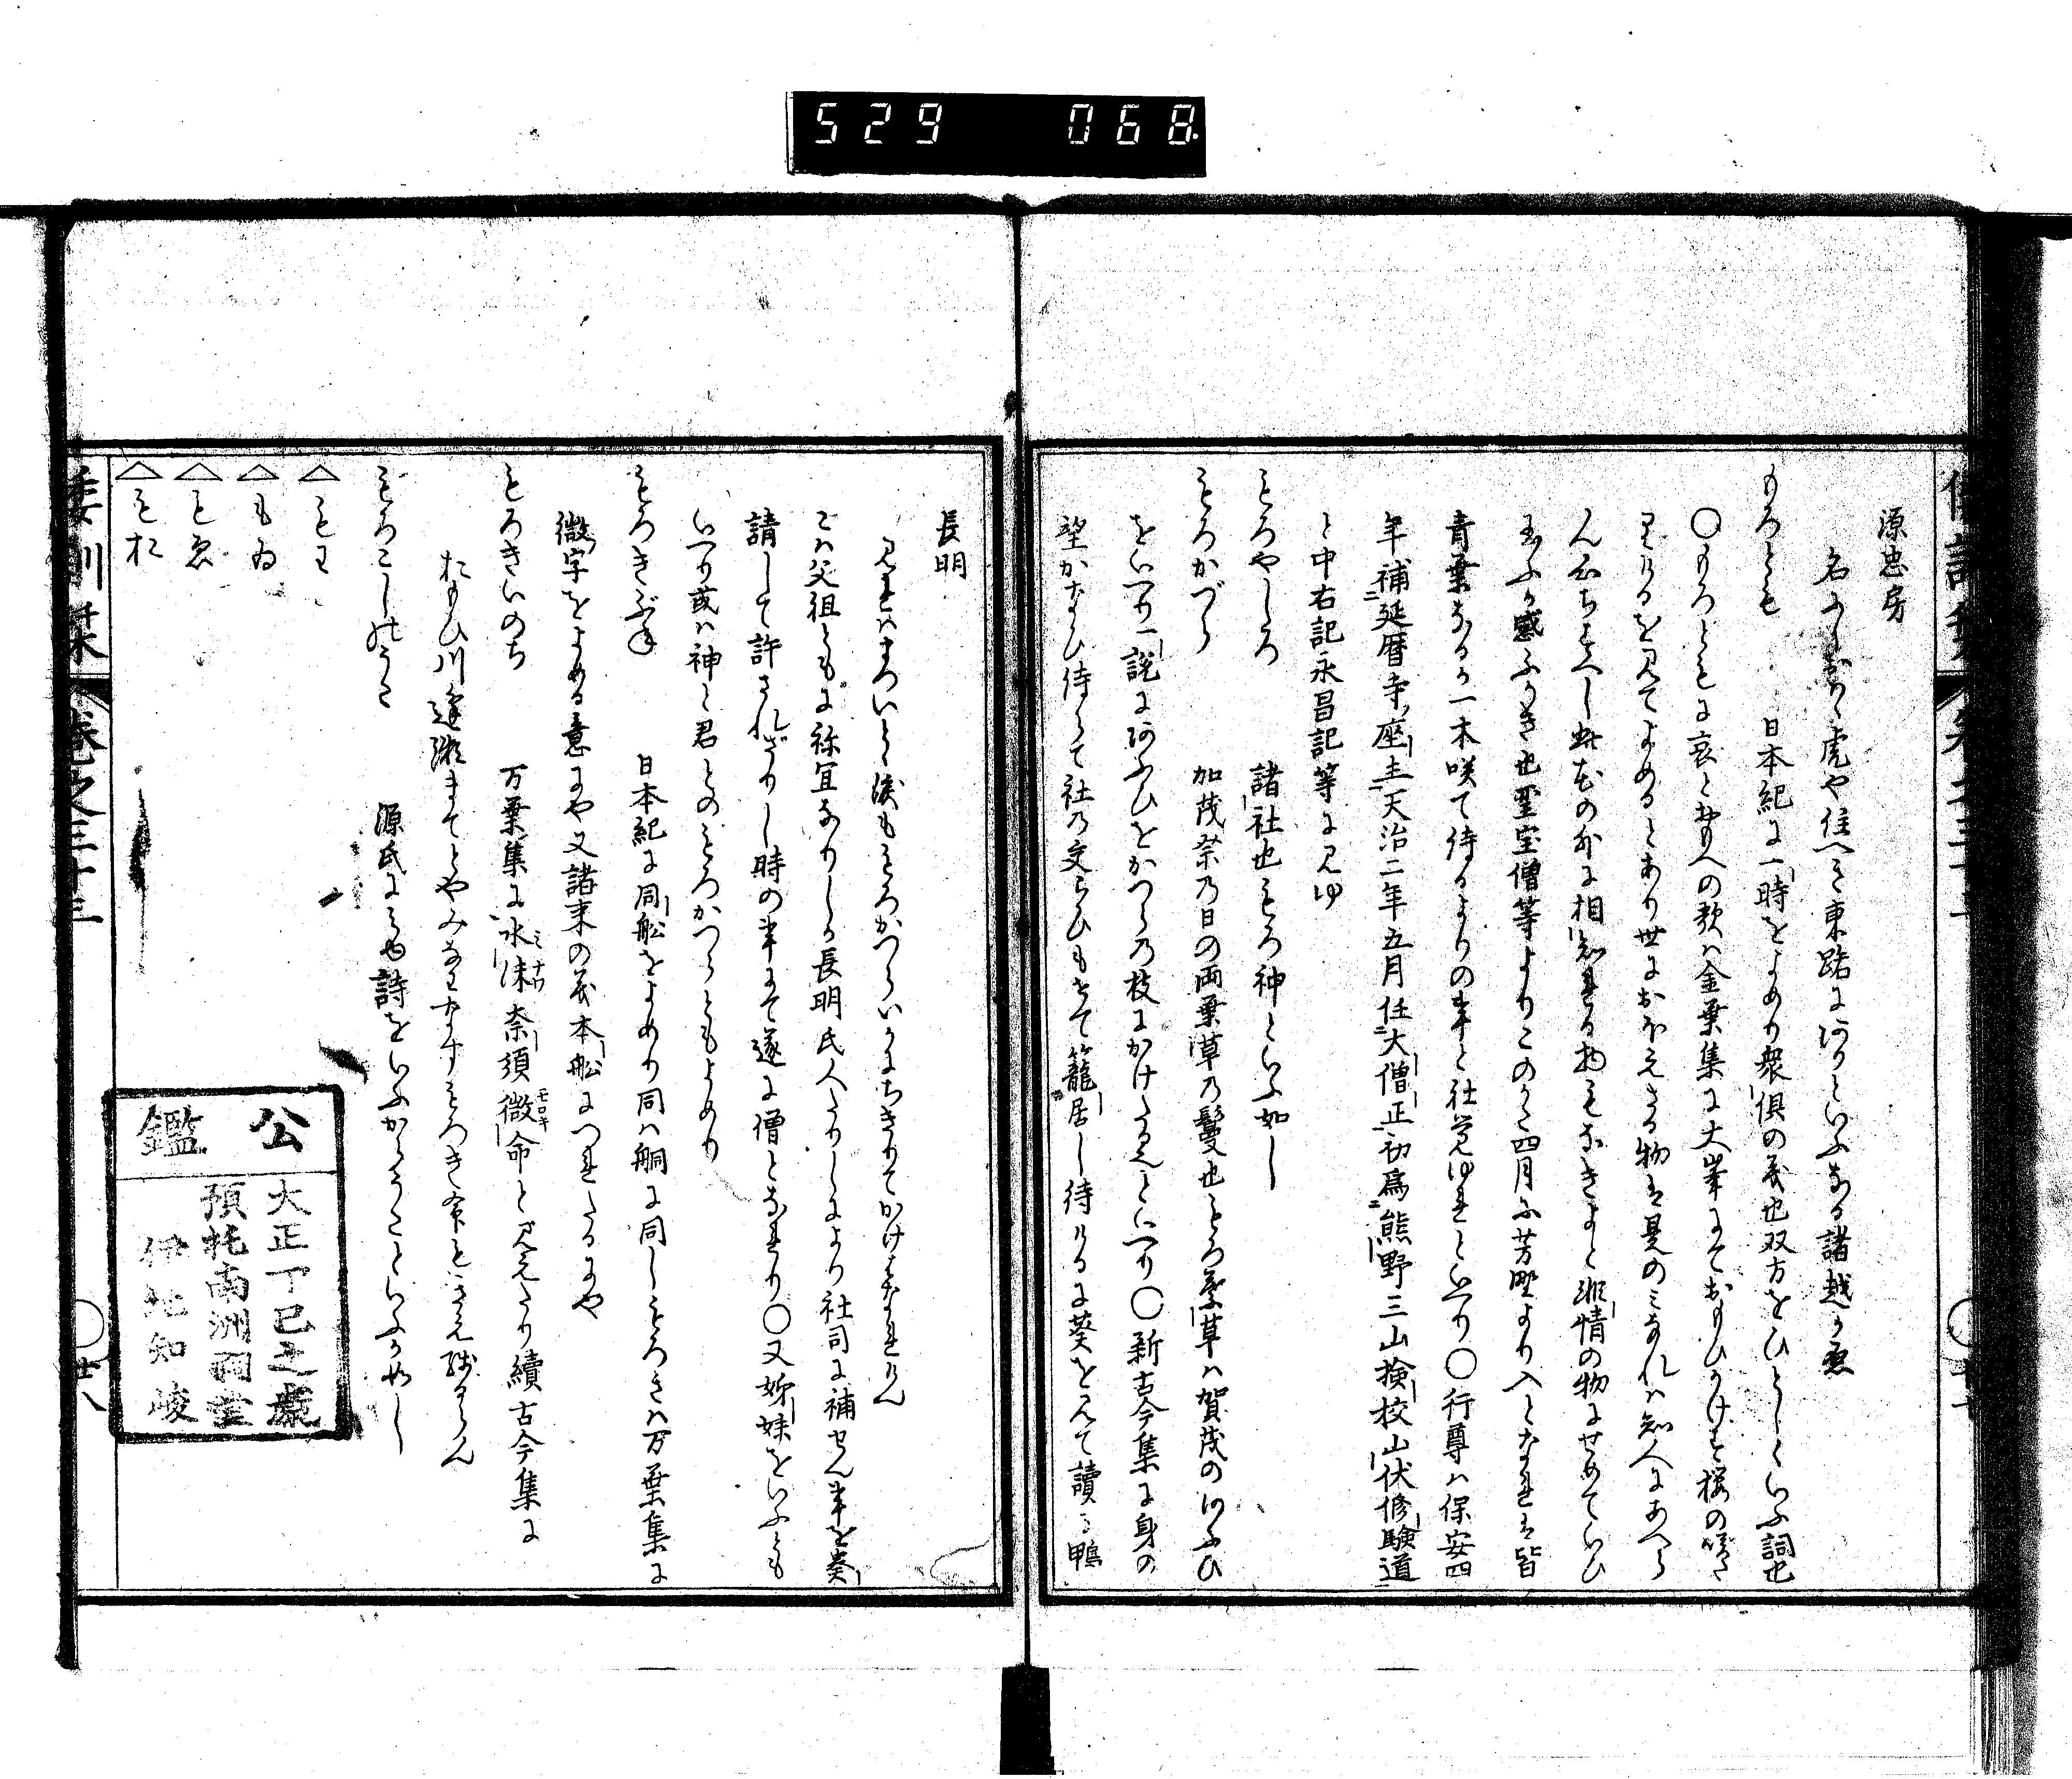 529 068
源忠房
名にしおはゝ虎や住へき東路にありといふなる諸越か原
もろとも 日本紀に一時をよめり衆倶の義也双方をひとしといふ詞也
○もろともに哀とおもへの歌は金葉集に大峯にておもひかけす桜の咲た
りけるを見てよめるとあり世におほえさる物は是のみなれは知人にあへら
んこゝちすへし此花の外に相知れる物もなきよと非情の物にせめていひ
玉ふか感ふかき也聖宝僧等よりこのかた四月に芳野より入となれは皆
青葉なるか一木咲て侍るよりの事と社見ゆれといへり○行尊は保安四
年補延暦寺座主天治二年五月任大僧正初為熊野三山検校山伏修験道
と中右記永昌記等に見ゆ
もろやしろ 諸社也もろ神といふ如し
もろかづら 加茂祭の日の両葉草の鬘也もろ葉草は賀茂のあふひ
をいへり一説にあふひをかつらの枝にかけたるへしといへり○新古今集に身の
望かなひ侍らて社の交らひもせて籠居し侍りけるに葵をみて読る鴨
長明
見れはまついとゝ涙ももろかつらいかにちきりてかけはなれけん
こは父祖ともに祢宜なりしか長明氏人たりしにより社司に補せん事を奏
請して許されざりし時の事にて遂に僧となれり○又姉妹をいふとも
いへり或は神と君とのもろかつらともよめり
もろきぶね 日本紀に同船をよめり同は舸に同しもろきは万葉集に
微字をよめる意にや又諸末の義本船につれたるにや
もろきいのち 万葉集に水沫奈須微命と見えたり続古今集に
ミナワ
モロキ
おもひ川逢瀬まてとやみなわなすもろき命もきえ残るらん
もろこしのうた 源氏にみゆ詩をいふからうたといふか如し
△もわ
△もゐ
△もゑ
△もお
倭訓栞 巻之三十三 ○廿八
公鑑
大正丁巳之歳
預托南洲祠堂
伊地知峻